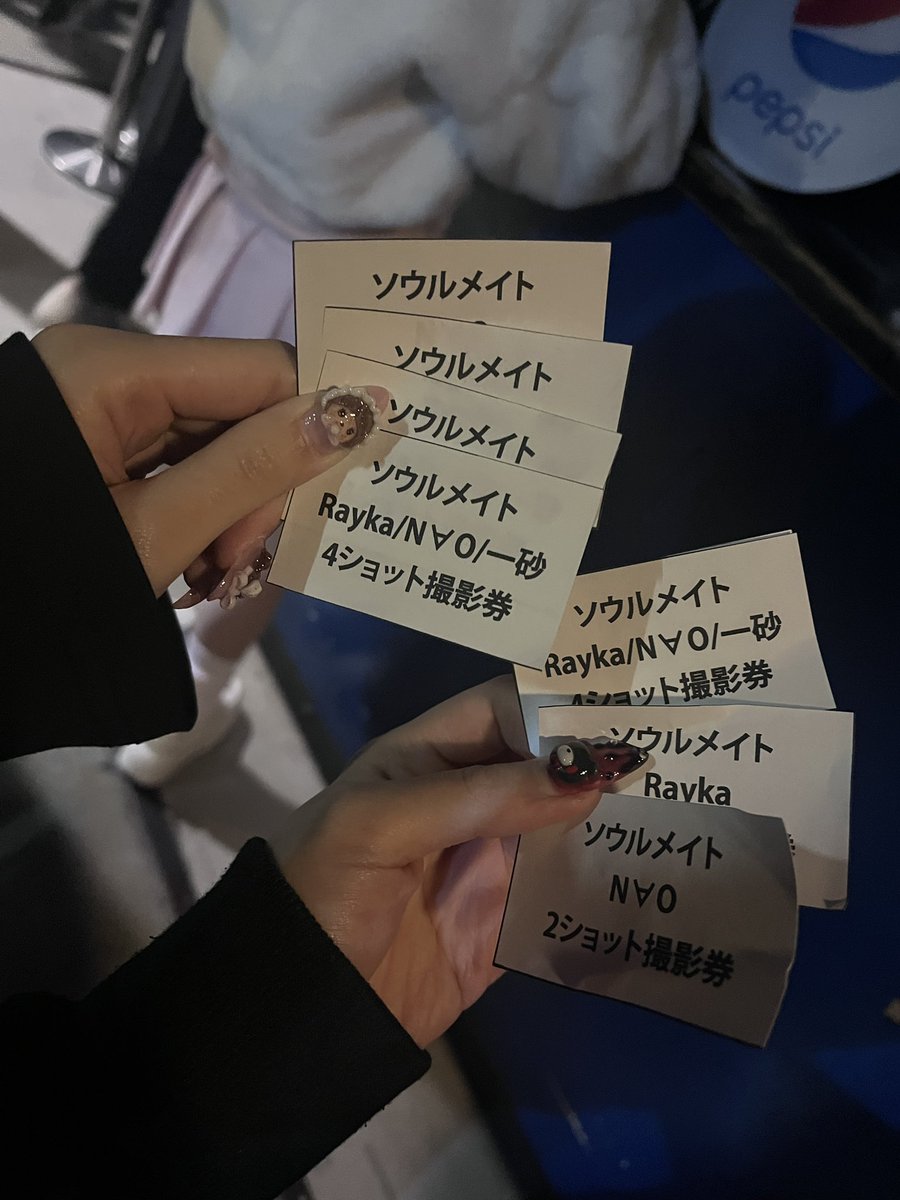 pepsi
ソウルメイト
ソウルメイト
ソウルメイト
ソウルメイト
Rayka/N∀O/一砂
4ショット撮影券
ソウルメイト
Rayka/N∀O/一砂
4ショット撮影券
ソウルメイト
Rayka
ソウルメイト
N∀O
2ショット撮影券